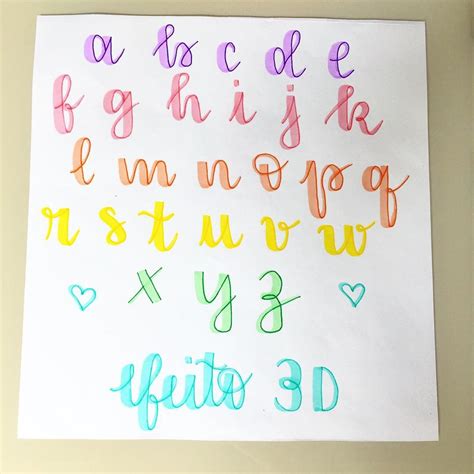 a b c d e
f g h i j k
l m n o p q
r s t u v w
x y z
efeito 3D